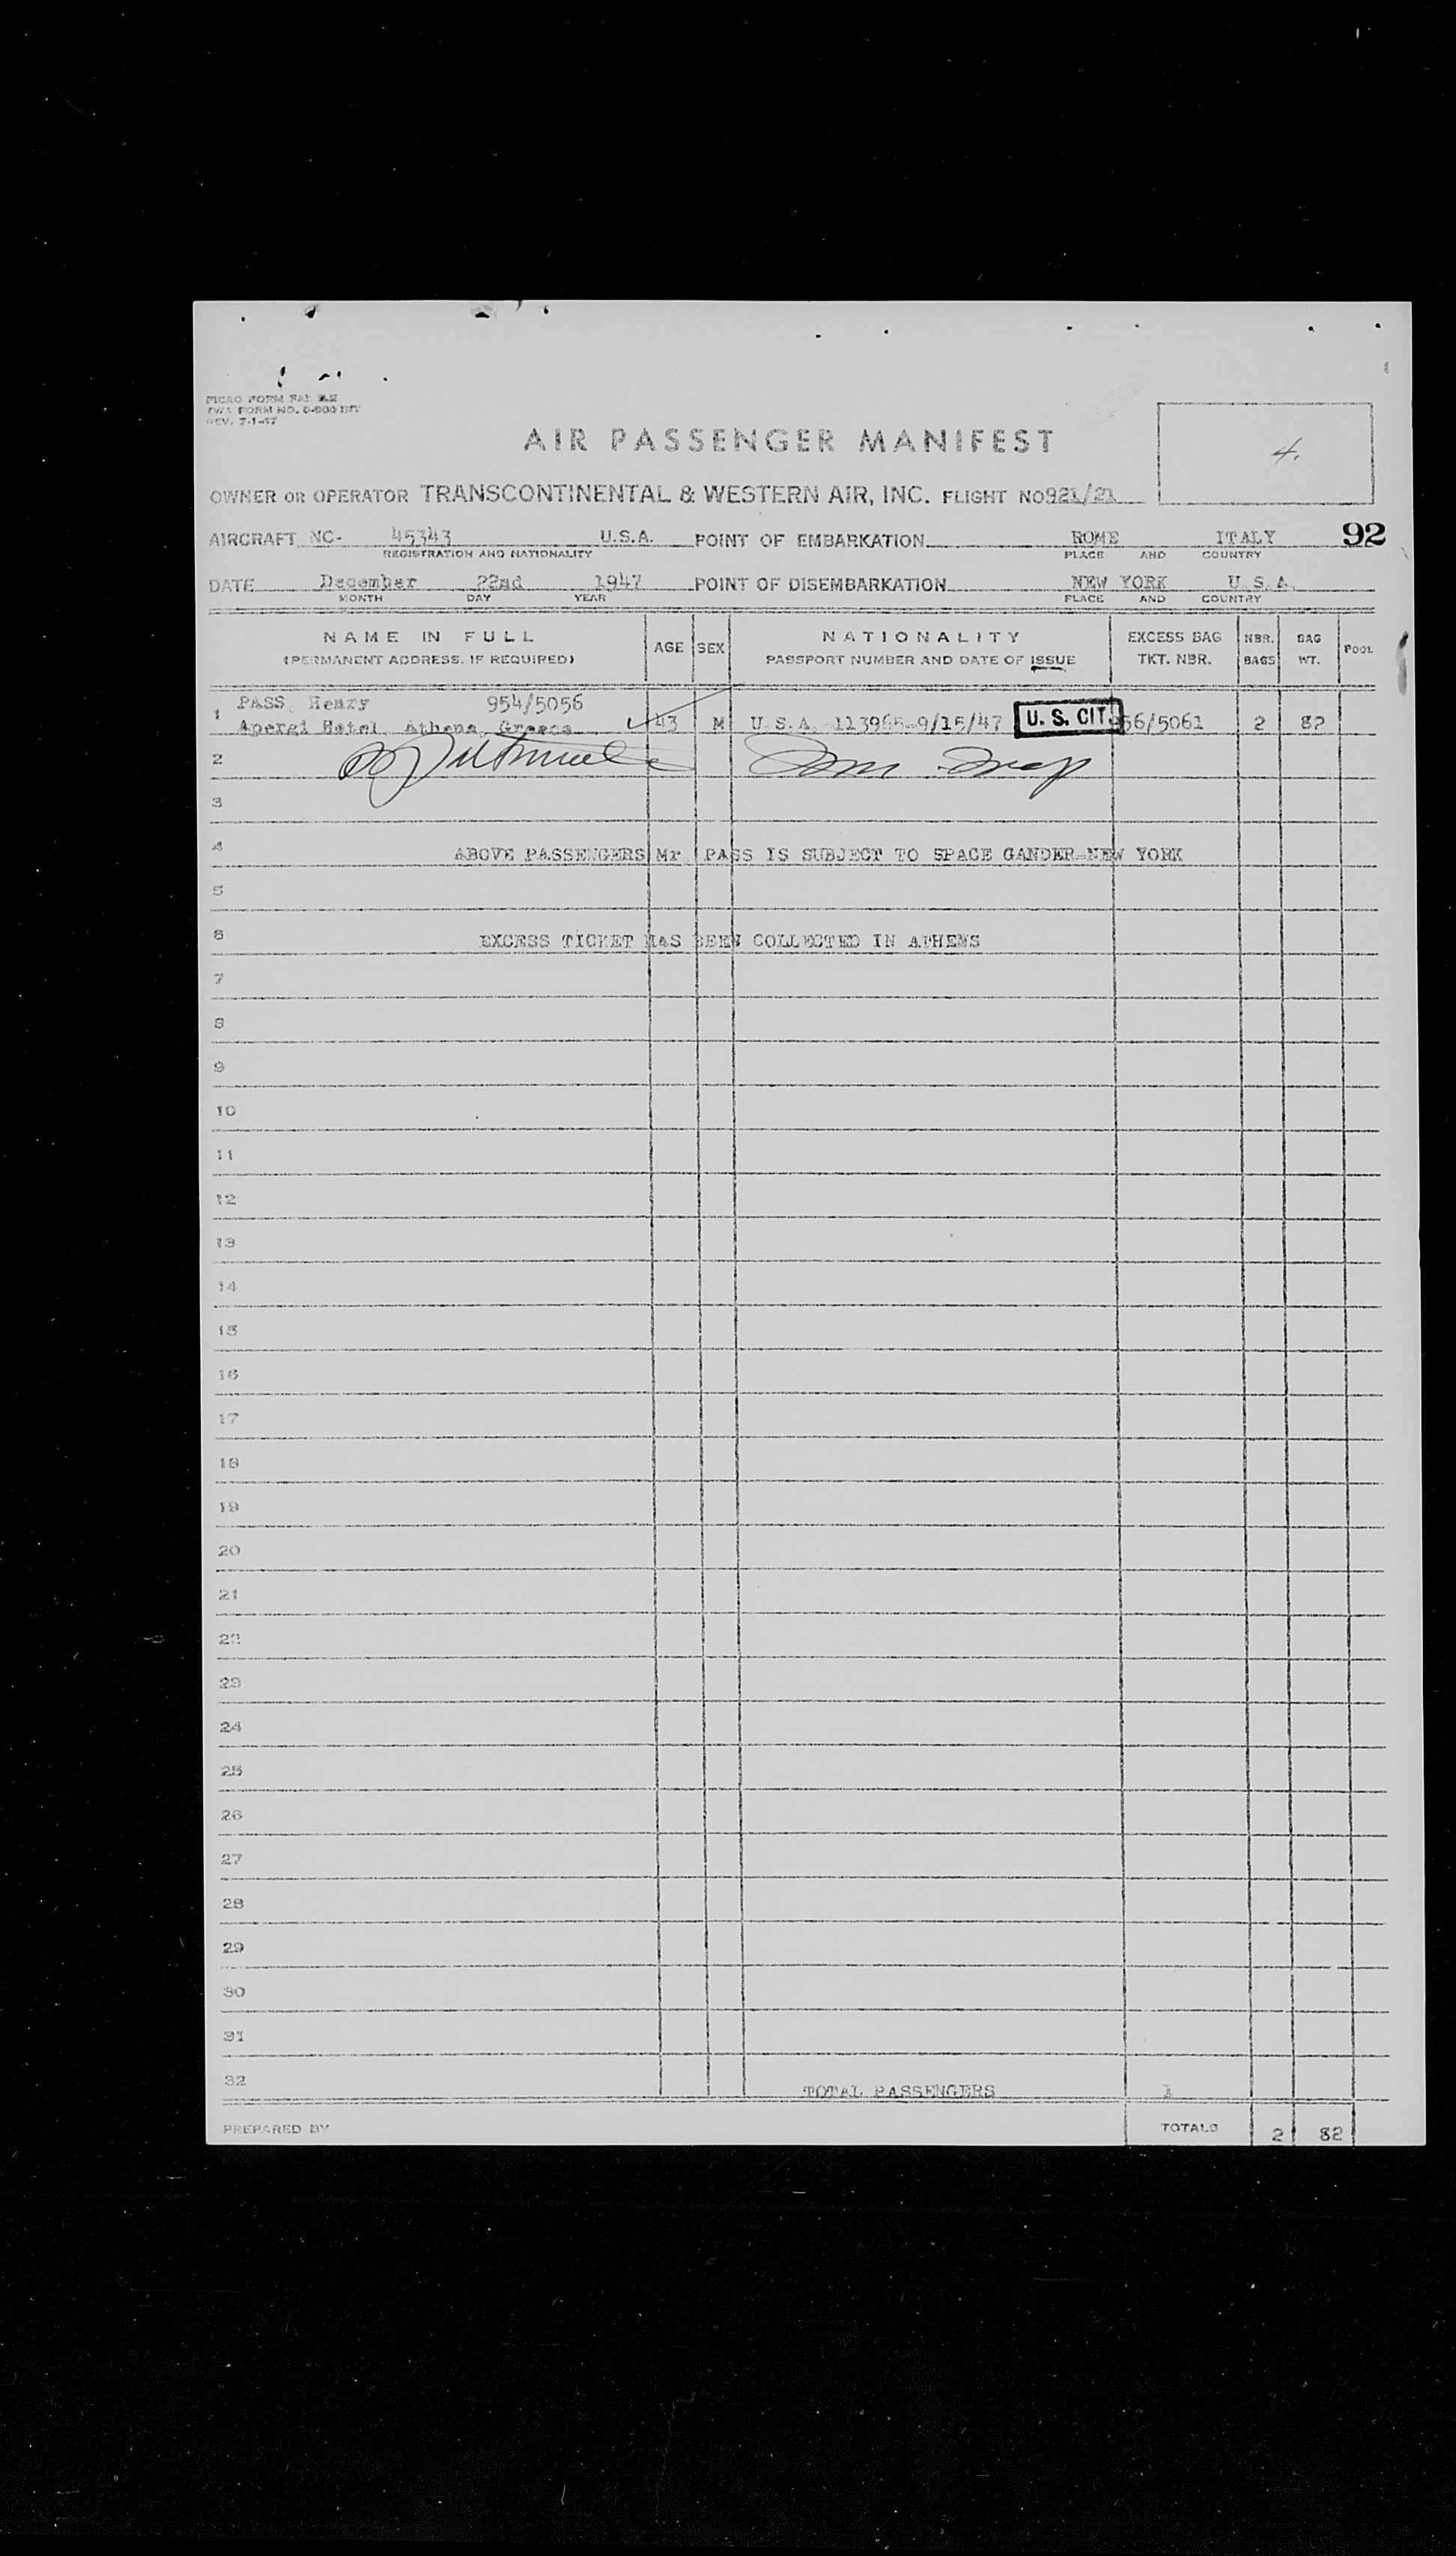 REV. 7-1-47
AIR PASSENGER MANIFEST
4.
OWNER OR OPERATOR TRANSCONTINENTAL & WESTERN AIR, INC. FLIGHT NO 921/21
AIRCRAFT NC- 45343 U.S.A. POINT OF EMBARKATION ROME ITALY 92
REGISTRATION AND NATIONALITY PLACE AND COUNTRY
DATE December 22nd 1947 POINT OF DISEMBARKATION NEW YORK U.S.A.
MONTH DAY YEAR PLACE AND COUNTRY
NAME IN FULL AGE SEX NATIONALITY EXCESS BAG NBR. BAG POOL
(PERMANENT ADDRESS, IF REQUIRED) PASSPORT NUMBER AND DATE OF ISSUE TKT. NBR. BAGS WT.
PASS, Henry 954/5056
1 Apergi Hotel, Athens, Greece 43 M U.S.A. 113965-9/15/47 U. S. CIT. 956/5061 2 82
2
3
4 ABOVE PASSENGERS Mr. PASS IS SUBJECT TO SPACE GANDER-NEW YORK
5
6 EXCESS TICKET HAS BEEN COLLECTED IN ATHENS
7
8
9
10
11
12
13
14
15
16
17
18
19
20
21
22
23
24
25
26
27
28
29
30
31
32 TOTAL PASSENGERS 1
PREPARED BY TOTALS 2 82